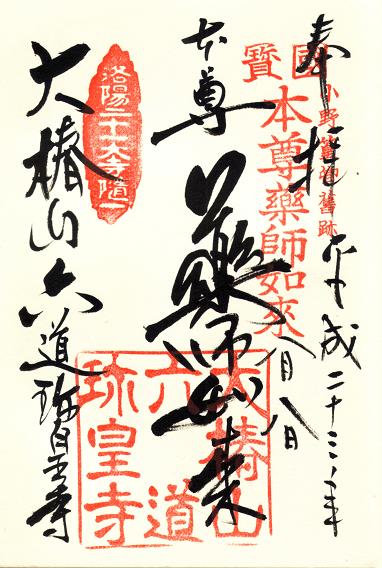 奉拝
平成二十三年
八月八日
小野篁卿舊跡
國寳
本尊藥師如来
本尊
薬師如来
洛陽二十大寺随一
大椿山六道珍皇寺
大椿山
六道
珎皇寺